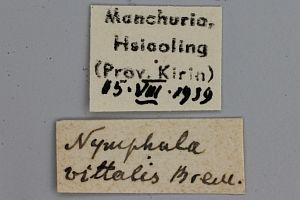 Manchuria,
Hsiaoling
(Prov. Kirin)
15.VIII.1939
Nymphula
vittalis Brem.